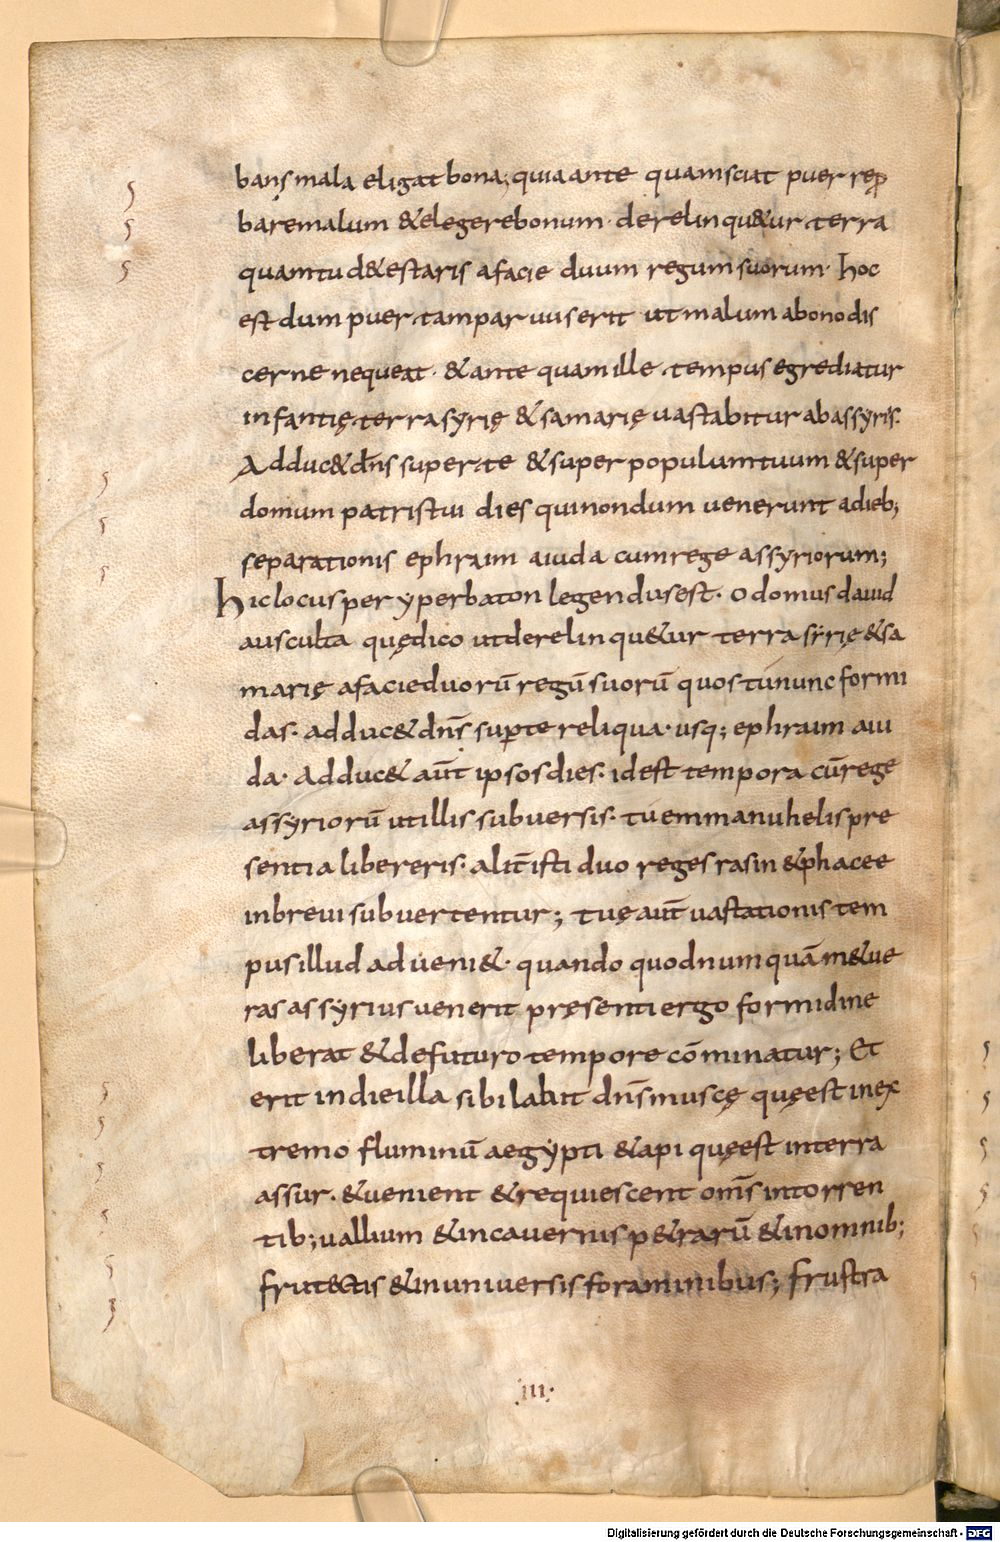 bans mala eligat bona; quia ante quam sciat puer repro
bare malum & elegere bonum · derelinqu&ur terra
quam tu d&estaris a facie duum regum suorum · hoc
est dum puer tam paruus erit ut malum a bono dis
cerne nequeat · & ante quam ille tempus egrediatur
infantię terra syrię & samarię uastabitur ab assyris.
Adduc& dn̄s super te & super populum tuum & super
domum patris tui dies qui non dum uenerunt a dieb;
separationis ephraim a iuda cum rege assyriorum;
hic locus per yperbaton legendus est · o domus dauid
ausculta quę dico ut derelinqu&ur terra syrię & sa
marię a facie duorū regū suorū quos tu nunc formi
das · adduc& dn̄s sup̄ te reliqua · usq; ephraim a iu
da · Adduc& aūt ipsos dies · id est tempora cū rege
assyriorū ut illis subuersis · tu emmanuhelis pre
sentia libereris · alit̄ isti duo reges rasin & phacee
in breui subuertentur; tuę aūt uastationis tem
pus illud adueni& · quando quod numquā m&ue
ras assyrius uenerit pręsenti ergo formidine
liberat & de futuro tempore cōminatur; Et
erit in die illa sibilabit dn̄s muscę quę est in ex
tremo fluminū aegypti & api quę est in terra
assur · & uenient & requiescent om̄s in torren
tib; uallium & in cauernis p&rarū & in omnib;
frut&tis & in uniuersis foraminibus; frustra
·III·
Digitalisierung gefördert durch die Deutsche Forschungsgemeinschaft - DFG